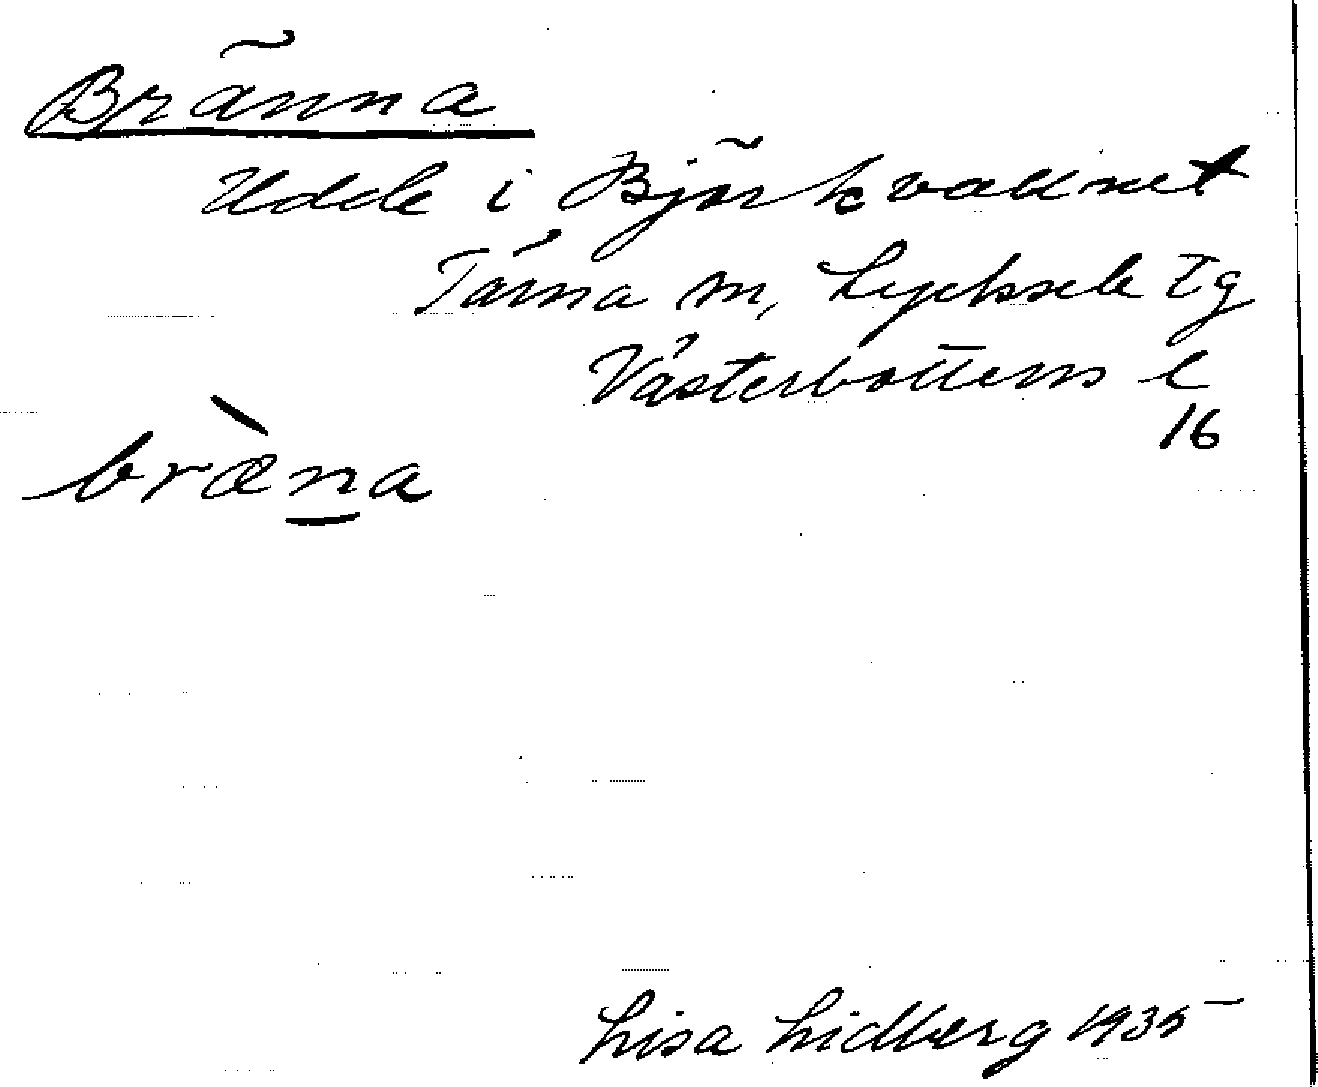 Bränna
Udde i Björkvattnet
Tärna sn, Lycksele Tg
Västerbottens l
16
bræ̀n̲a
Lisa Lidberg 1935